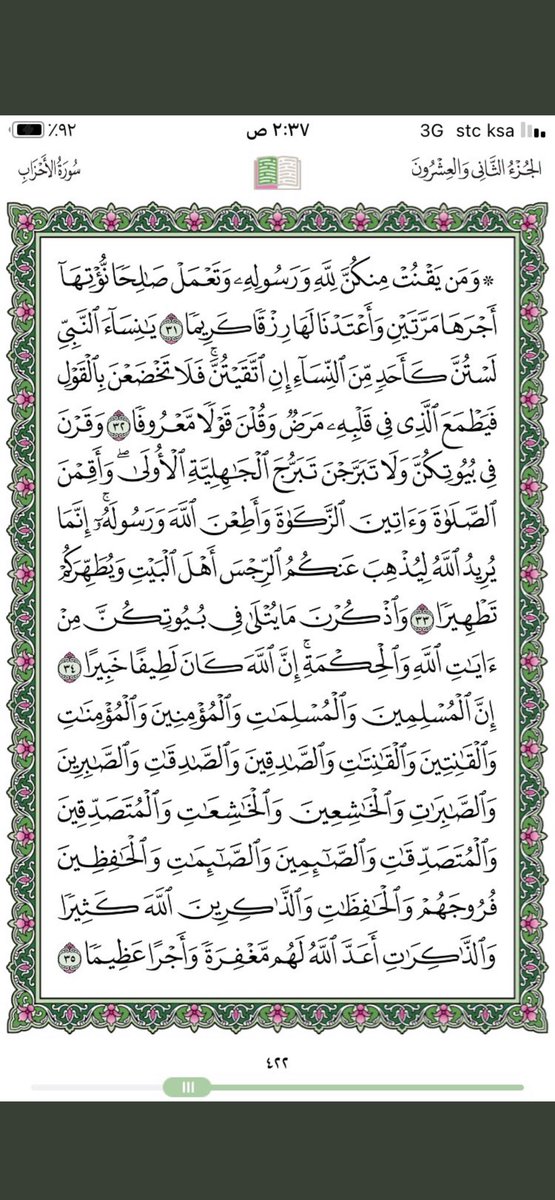 3G stc ksa ٢:٣٧ ص ٪٩٢
الجُزْءُ الثَّانِي وَالعِشْرُونَ سُورَةُ الأَحْزَابِ
* وَمَن يَقْنُتْ مِنكُنَّ لِلَّهِ وَرَسُولِهِۦ وَتَعْمَلْ صَٰلِحًا نُّؤْتِهَآ
أَجْرَهَا مَرَّتَيْنِ وَأَعْتَدْنَا لَهَا رِزْقًا كَرِيمًا ٣١ يَٰنِسَآءَ ٱلنَّبِيِّ
لَسْتُنَّ كَأَحَدٍ مِّنَ ٱلنِّسَآءِ إِنِ ٱتَّقَيْتُنَّۚ فَلَا تَخْضَعْنَ بِٱلْقَوْلِ
فَيَطْمَعَ ٱلَّذِي فِي قَلْبِهِۦ مَرَضٌ وَقُلْنَ قَوْلًا مَّعْرُوفًا ٣٢ وَقَرْنَ
فِي بُيُوتِكُنَّ وَلَا تَبَرَّجْنَ تَبَرُّجَ ٱلْجَٰهِلِيَّةِ ٱلْأُولَىٰۖ وَأَقِمْنَ
ٱلصَّلَوٰةَ وَءَاتِينَ ٱلزَّكَوٰةَ وَأَطِعْنَ ٱللَّهَ وَرَسُولَهُۥٓۚ إِنَّمَا
يُرِيدُ ٱللَّهُ لِيُذْهِبَ عَنكُمُ ٱلرِّجْسَ أَهْلَ ٱلْبَيْتِ وَيُطَهِّرَكُمْ
تَطْهِيرًا ٣٣ وَٱذْكُرْنَ مَا يُتْلَىٰ فِي بُيُوتِكُنَّ مِنْ
ءَايَٰتِ ٱللَّهِ وَٱلْحِكْمَةِۚ إِنَّ ٱللَّهَ كَانَ لَطِيفًا خَبِيرًا ٣٤
إِنَّ ٱلْمُسْلِمِينَ وَٱلْمُسْلِمَٰتِ وَٱلْمُؤْمِنِينَ وَٱلْمُؤْمِنَٰتِ
وَٱلْقَٰنِتِينَ وَٱلْقَٰنِتَٰتِ وَٱلصَّٰدِقِينَ وَٱلصَّٰدِقَٰتِ وَٱلصَّٰبِرِينَ
وَٱلصَّٰبِرَٰتِ وَٱلْخَٰشِعِينَ وَٱلْخَٰشِعَٰتِ وَٱلْمُتَصَدِّقِينَ
وَٱلْمُتَصَدِّقَٰتِ وَٱلصَّٰٓئِمِينَ وَٱلصَّٰٓئِمَٰتِ وَٱلْحَٰفِظِينَ
فُرُوجَهُمْ وَٱلْحَٰفِظَٰتِ وَٱلذَّٰكِرِينَ ٱللَّهَ كَثِيرًا
وَٱلذَّٰكِرَٰتِ أَعَدَّ ٱللَّهُ لَهُم مَّغْفِرَةً وَأَجْرًا عَظِيمًا ٣٥
٤٢٢